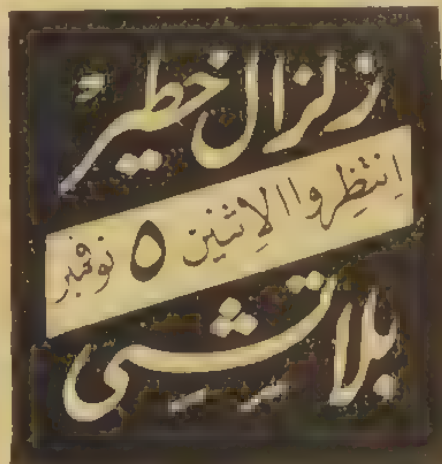 زلزال خطير
انتظروا الاثنين ٥ نوفمبر
بلاتشى